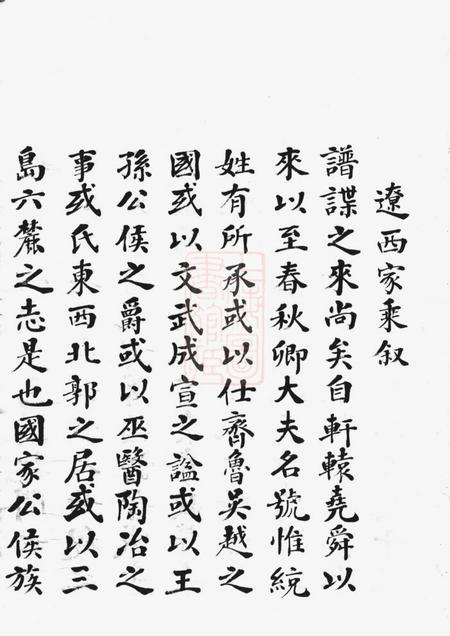 遼西家乘叙
譜諜之來尚矣自軒轅堯舜以
來以至春秋卿大夫名號惟統
姓有所承或以仕齊魯吳越之
國或以文武成宣之諡或以王
孫公侯之爵或以巫醫陶冶之
事或氏東西北郭之居或以三
島六麓之志是也國家公侯族